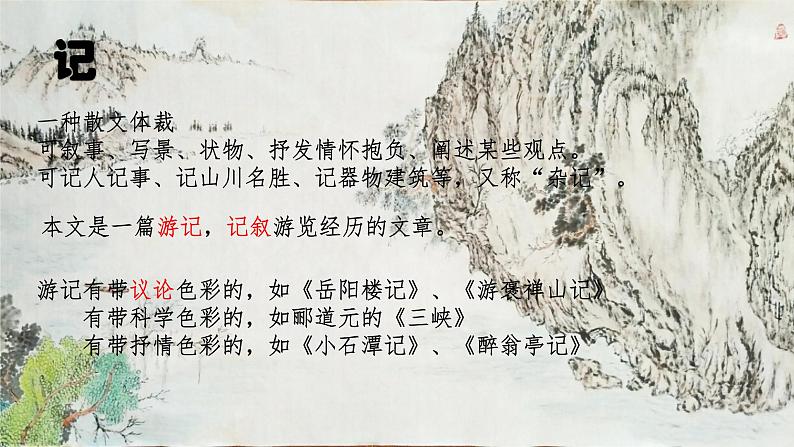 记
一种散文体裁
可叙事、写景、状物、抒发情怀抱负、阐述某些观点。
可记人记事、记山川名胜、记器物建筑等，又称“杂记”。
本文是一篇游记，记叙游览经历的文章。
游记有带议论色彩的，如《岳阳楼记》、《游褒禅山记》
有带科学色彩的，如郦道元的《三峡》
有带抒情色彩的，如《小石潭记》、《醉翁亭记》